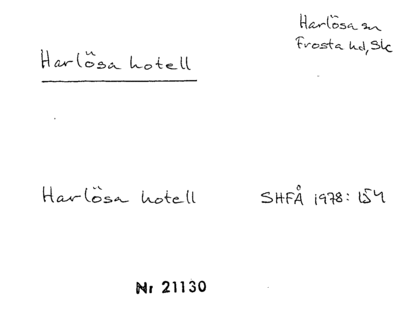 Harlösa sn
Frosta hd, Sk
Harlösa hotell
Harlösa hotell SHFÅ 1978: 154
Nr 21130